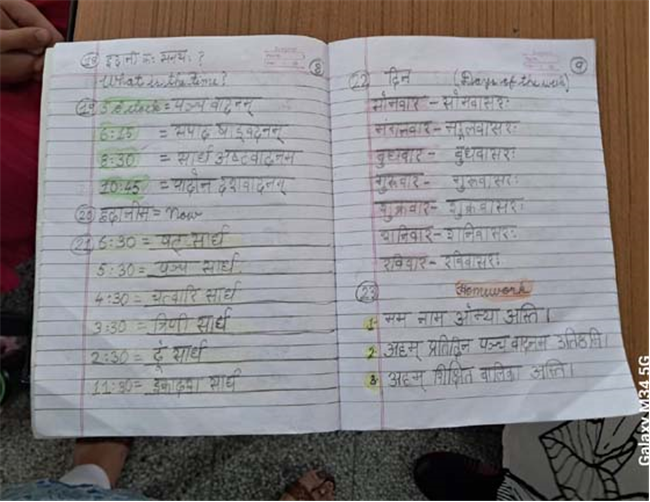 18 इदानीं कः समयः ?
What is the time?
8
19 5 o'clock = पञ्च वादनम्
6:15 = सपाद षड्वादनम्
8:30 = सार्ध अष्टवादनम
10:45 = पादोन दशवादनम्
20 इदानीम = Now
21 6:30 = षट् सार्ध
5:30 = पञ्च सार्ध
4:30 = चत्वारि सार्ध
3:30 = त्रिणी सार्ध
2:30 = द्वे सार्ध
11:30 = एकादश सार्ध
9
22 दिन (Days of the week)
सोमवार - सोमवासरः
मंगलवार - मङ्गलवासरः
बुधवार - बुधवासरः
गुरुवार - गुरुवासरः
शुक्रवार - शुक्रवासरः
शनिवार - शनिवासरः
रविवार - रविवासरः
23 Homework
1 मम नाम अस्ति।
2 अहम् प्रतिदिन पञ्च वादनम
3 अहम् शिक्षित बालिका अस्ति।
Galaxy M34 5G